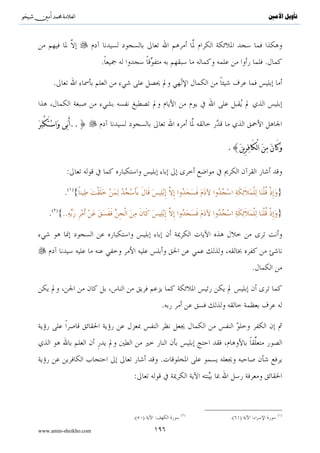 تأويل الأمين
العلامة محمد أمين شيخو
وهكذا فما سجد الملائكة الكرام لما أمرهم الله تعالى بالسجود لسيدنا آدم ﷺ إلاّ لما فيهم من
كمال. فلما رأوا من علمه وكماله ما سبقهم به متفوِّقاً سجدوا له جميعاً.
أما إبليس فما عرف شيئاً من الكمال الإلهي ولم يحصل على شيء من العلم بأسماء الله تعالى.
إبليس الذي لم يُقبل على الله في يوم من الأيام ولم تصطبغ نفسه بشيء من صبغة الكمال، هذا
الجاهل الأحمق الذي ما قدَّر خالقه لَمَّا أمره الله تعالى بالسجود لسيدنا آدم ﷺ ﴿..أَبَى وَاسْتَكْبَرَ
وَكَانَ مِنَ الْكَافِرِينَ﴾.
وقد أشار القرآن الكريم في مواضع أخرى إلى إباء إبليس واستكباره كما في قوله تعالى:
{وَإِذْ قُلْنَا لِلْمَلَائِكَةِ اسْجُدُوا لِآدَمَ فَسَجَدُوا إِلَّا إِبْلِيسَ قَالَ أَأَسْجُدُ لِمَنْ خَلَقْتَ طِيناً}(١).
{وَإِذْ قُلْنَا لِلْمَلَائِكَةِ اسْجُدُوا لِآدَمَ فَسَجَدُوا إِلَّا إِبْلِيسَ كَانَ مِنَ الْجِنِّ فَفَسَقَ عَنْ أَمْرِ رَبِّهِ..}(٢).
وأنت ترى من خلال هذه الآيات الكريمة أن إباء إبليس واستكباره عن السجود إنما هو شيء
ناشئ من كفره بخالقه، ولذلك عمي عن الحق وأبلس عليه الأمر وخفي عنه ما عليه سيدنا آدم ﷺ
من الكمال.
كما ترى أن إبليس لم يكن رئيس الملائكة كما يزعم فريق من الناس، بل كان من الجن، ولم يكن
له عرف بعظمة خالقه ولذلك فسق عن أمر ربه.
ثم إن الكفر وخلوّ النفس من الكمال يجعل نظر النفس بمعزل عن رؤية الحقائق قاصراً على رؤية
الصور متعلّقاً بالأوهام، فقد احتج إبليس بأن النار خير من الطين ولم يدرِ أن العلم بالله هو الذي
يرفع شأن صاحبه ويجعله يسمو على المخلوقات. وقد أشار تعالى إلى احتجاب الكافرين عن رؤية
الحقائق ومعرفة رسل الله بما بيَّنته الآية الكريمة في قوله تعالى:
(١) سورة الإسراء: الآية (٦١).
(٢) سورة الكهف: الآية (٥٠).
١٩٦
www.amin-sheikho.com